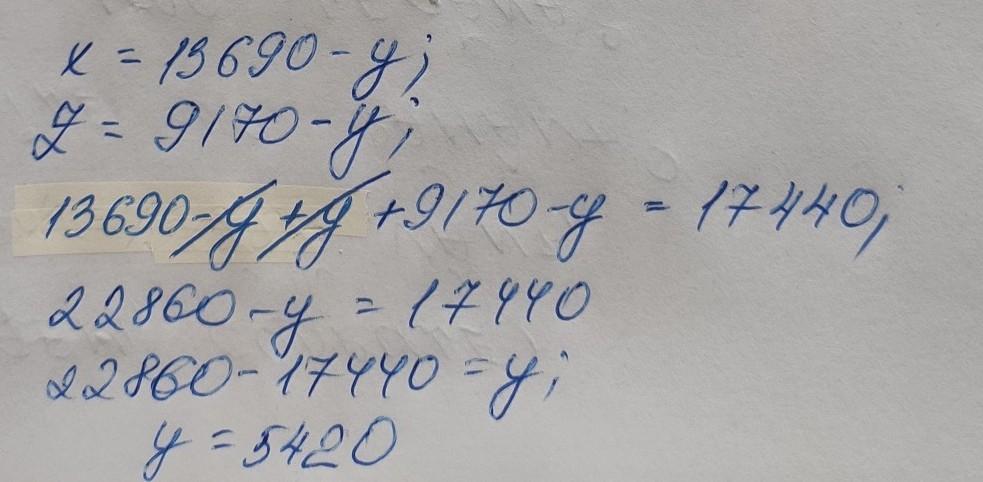 x = 13690 - y;
z = 9170 - y;
13690 - y + y + 9170 - y = 17440;
22860 - y = 17440
22860 - 17440 = y;
y = 5420